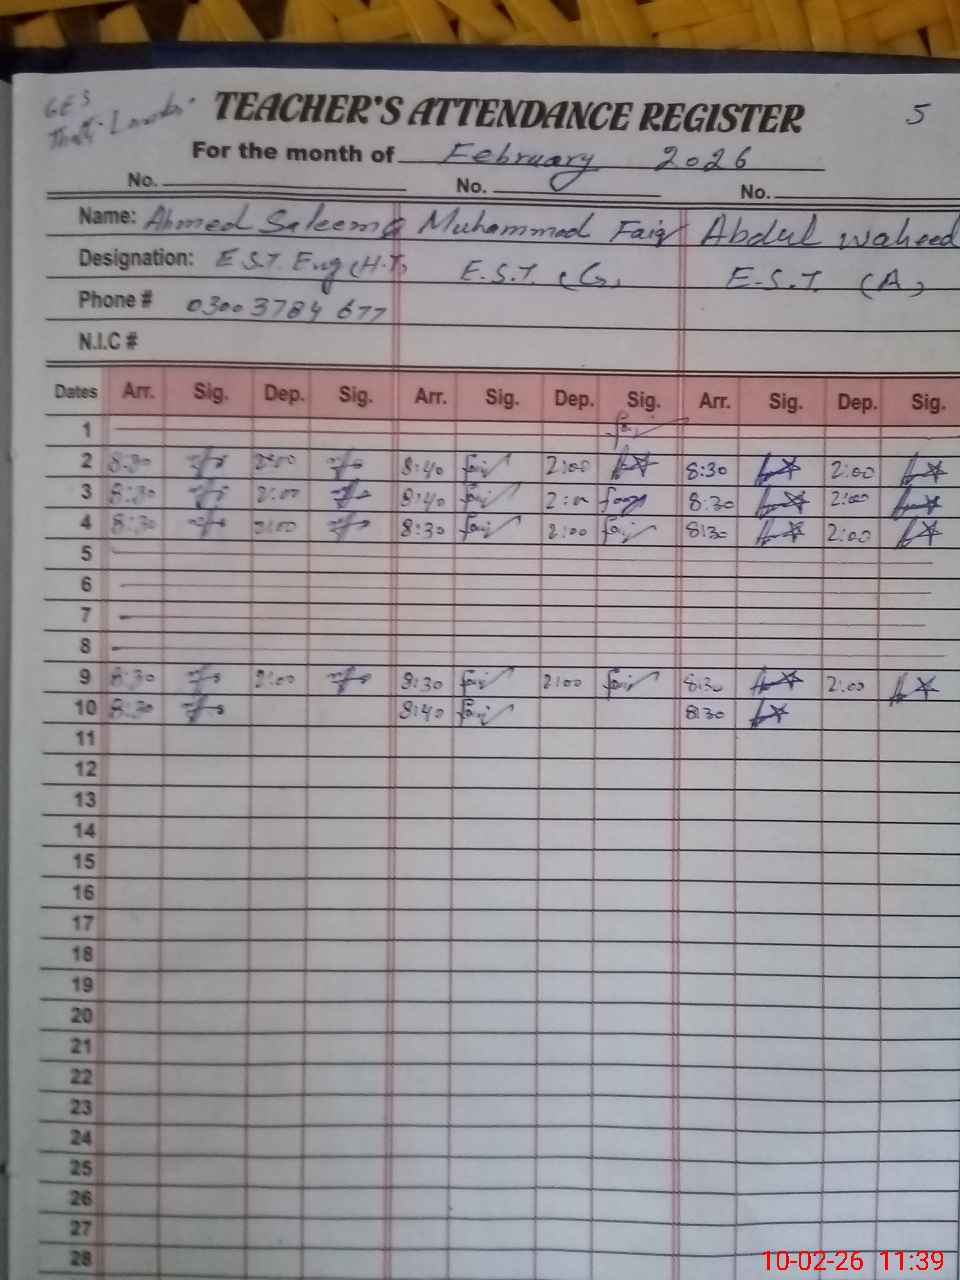 GES
Thatti-
TEACHER'S ATTENDANCE REGISTER 5
For the month of February 2026
No. No. No.
Name: Ahmed Saleem Muhammad Faiq Abdul waheed
Designation: E.S.T. Eng (H.T) E.S.T. (G) E.S.T. (A)
Phone # 0300 3784 677
N.I.C #
Dates Arr. Sig. Dep. Sig. Arr. Sig. Dep. Sig. Arr. Sig. Dep. Sig.
1
2 8:30 2:00 8:40 2:00 8:30 2:00
3 8:30 2:00 8:40 2:00 8:30 2:00
4 8:30 2:00 8:30 2:00 8:30 2:00
5
6
7
8
9 8:30 2:00 8:30 2:00 8:30 2:00
10 8:30 8:40 8:30
11
12
13
14
15
16
17
18
19
20
21
22
23
24
25
26
27
28
10-02-26 11:39